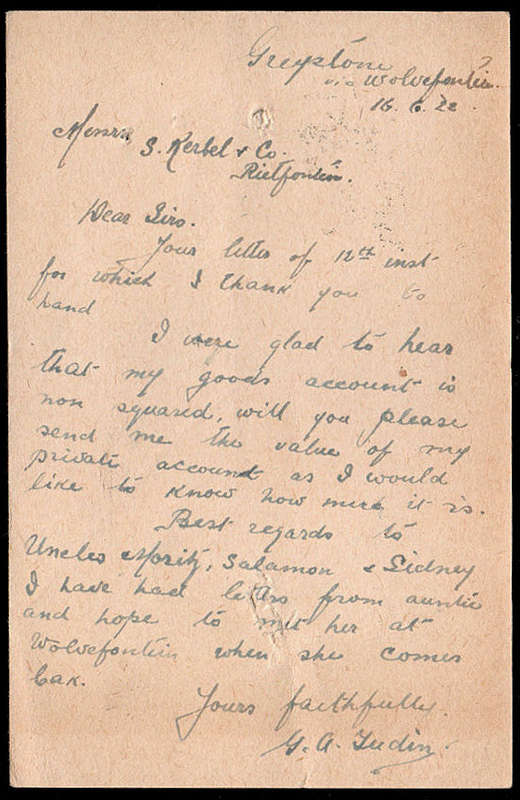 Greystone
via Wolvefontein.
16.6.22.
Messrs S. Kerbel & Co.
Rietfontein.
Dear Sirs.
Your letter of 12th inst
for which I thank you to
hand
I were glad to hear
that my goods account is
non squared, will you please
send me the value of my
private account as I would
like to know how much it is.
Best regards to
Uncles Moritz, Salamon & Sidney
I have had letters from auntie
and hope to met her at
Wolvefontein when she comes
bak.
Yours faithfully.
G. A. Judin.